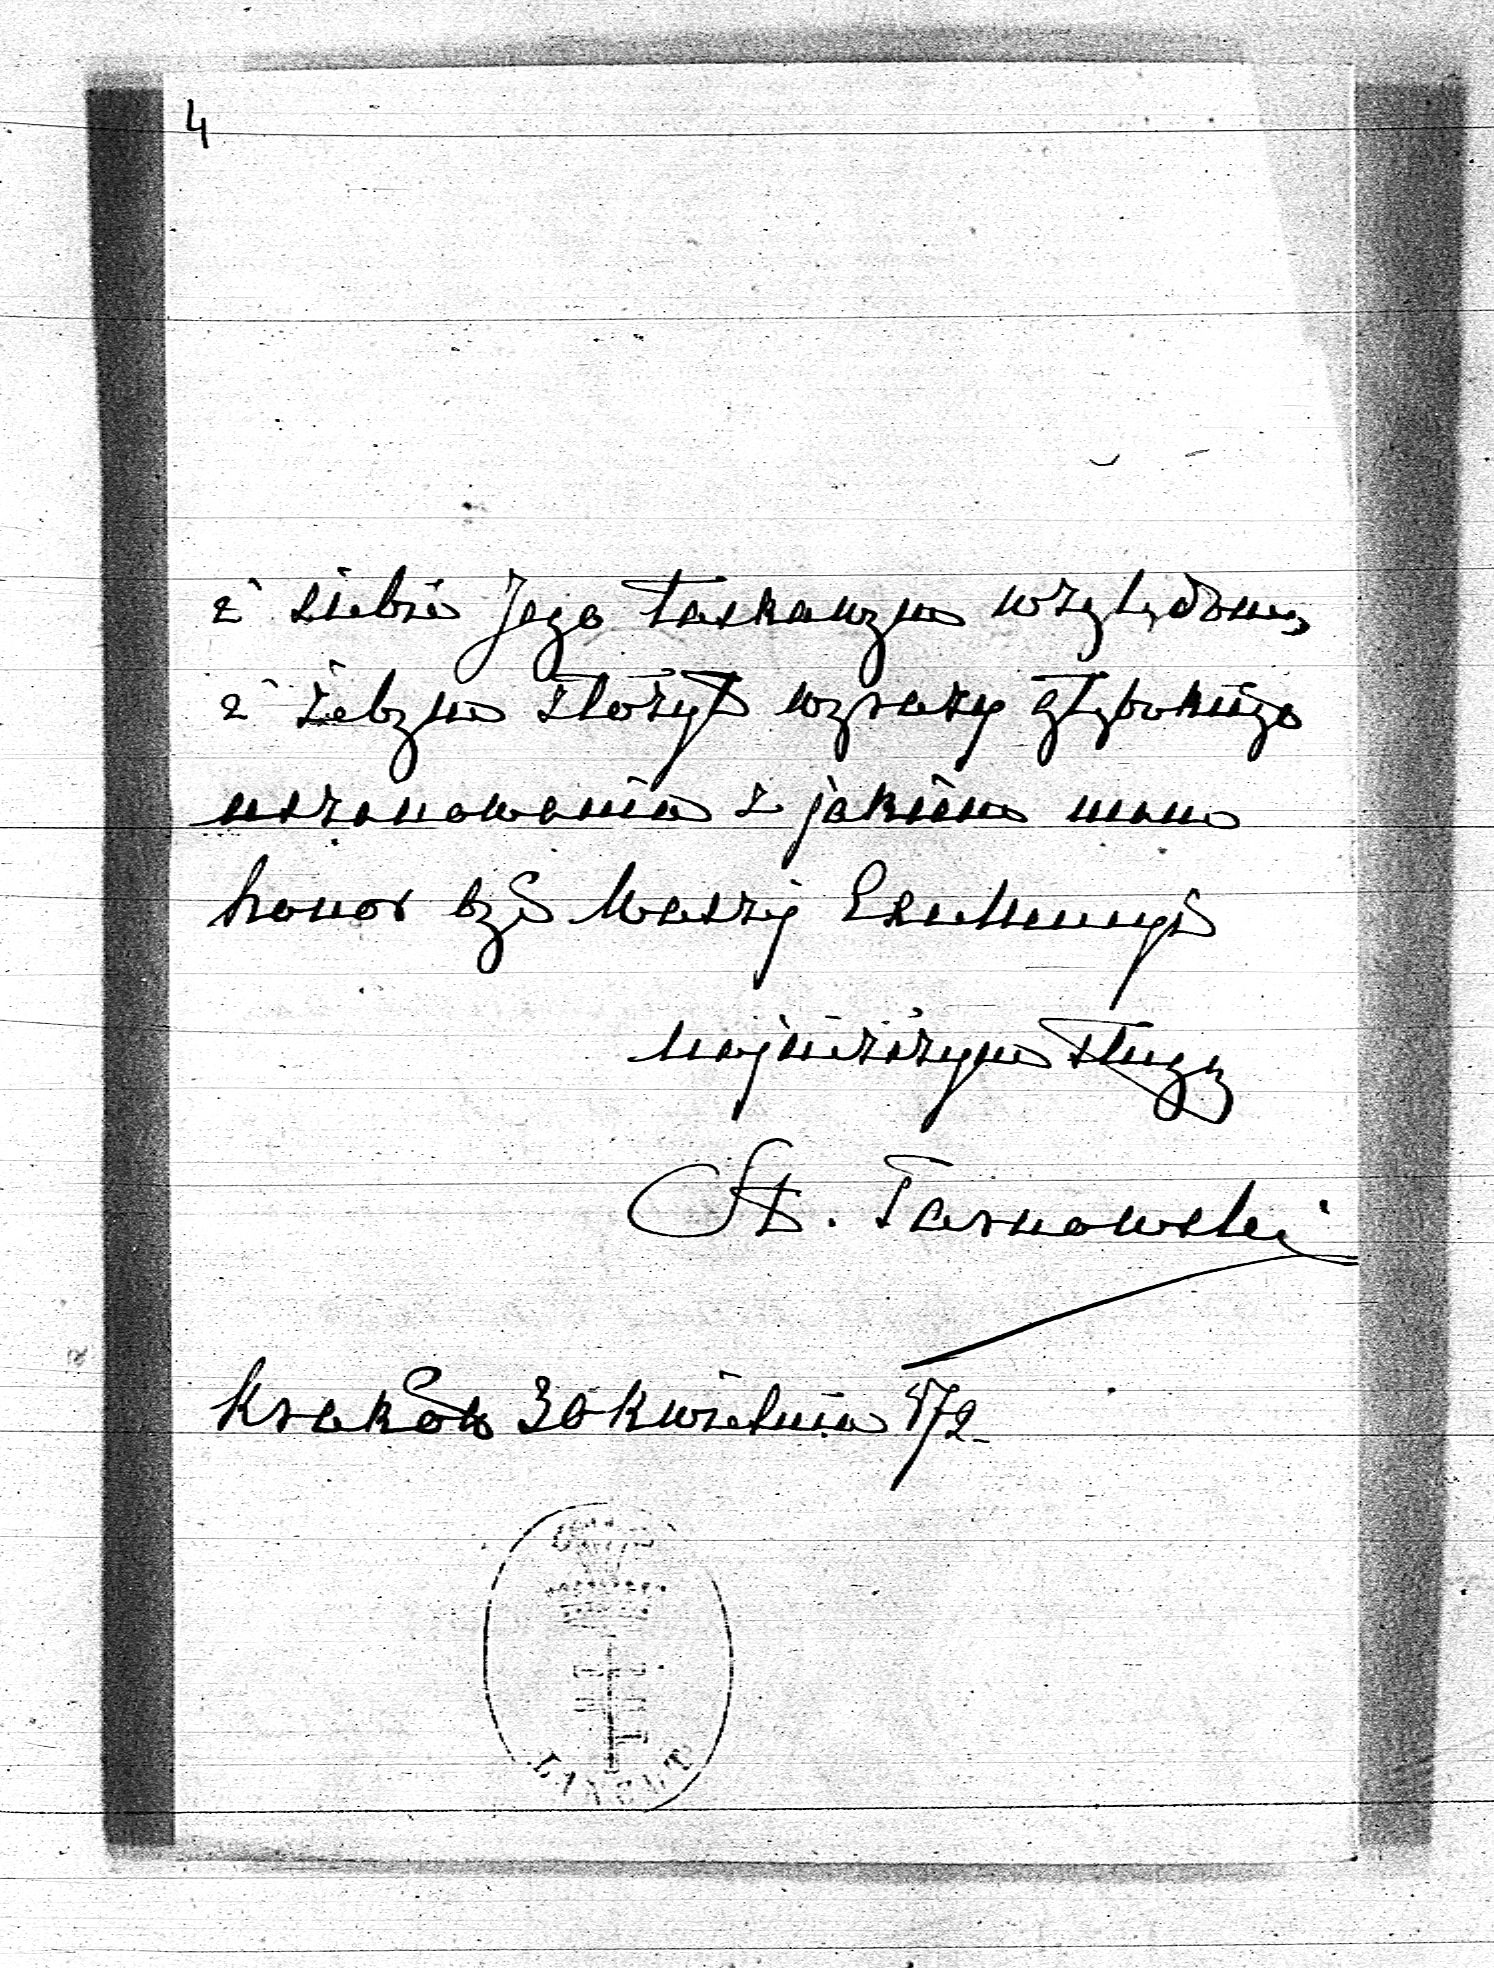 4
i siebie Jego łaskawym względom,
i żebym złożył wyrazy głębokiego
uszanowania z jakiem mam
honor być Waszej Excellencyi
najniższym sługą
St. Tarnowski
Kraków 30 kwietnia 872
ŁAŃCUT